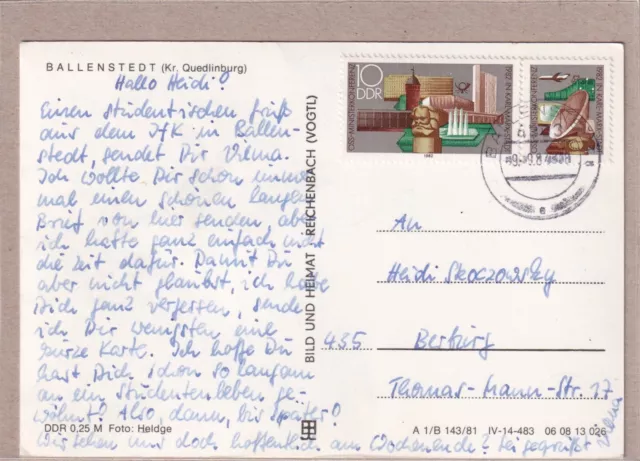 BALLENSTEDT (Kr. Quedlinburg)
Hallo Heidi!
Einen studentischen Gruß
aus dem IfK in Ballen-
stedt, sendet Dir Vilma.
Ich wollte Dir schon immer
mal einen schönen langen
Brief von hier senden, aber
ich hatte ganz einfach nicht
die Zeit dafür. Damit Du
aber nicht glaubst, ich habe
Dich ganz vergessen, sende
ich Dir wenigstens eine
kurze Karte. Ich hoffe Du
hast Dich schon so langsam
an ein Studentenleben ge-
wöhnt! Also, dann, bis später!
Wir sehen uns doch hoffentlich am Wochenende? Sei gegrüßt
DDR 0,25 M Foto: Heldge
BILD UND HEIMAT REICHENBACH (VOGTL)
10
DDR
1982
An
Heidi Skoczowsky
435 Bernburg
Thomas-Mann-Str. 17
A 1/B 143/81 IV-14-483 06 08 13 026